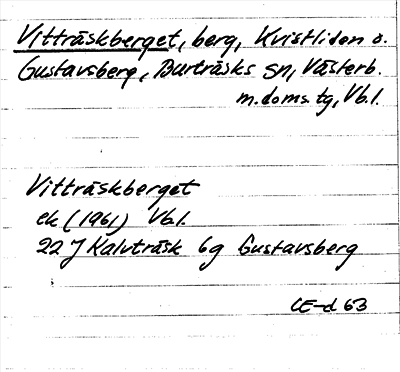 Vitträskberget, berg, Kvistliden o.
Gustavsberg, Burträsks sn, Västerb.
m.doms.tg, Vb.l.
Vitträskberget
ek (1961) Vb.l.
22 J Kalvträsk 6g Gustavsberg
CE-d 63